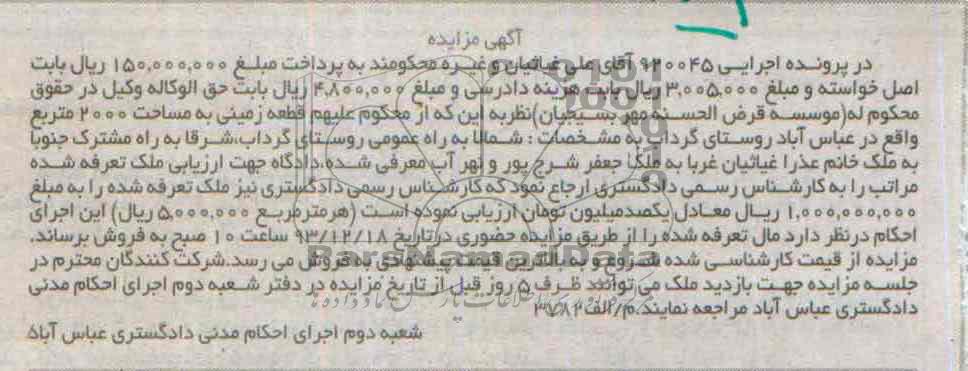 آگهی مزایده
در پرونده اجرایی ۹۲۰۰۴۵ آقای علی غیاثیان و غیره محکومند به پرداخت مبلغ ۱۵۰,۰۰۰,۰۰۰ ریال بابت
اصل خواسته و مبلغ ۳,۰۰۵,۰۰۰ ریال بابت هزینه دادرسی و مبلغ ۴,۸۰۰,۰۰۰ ریال بابت حق الوکاله وکیل در حقوق
محکوم له(موسسه قرض الحسنه مهر بسیجیان)نظربه این که از محکوم علیهم قطعه زمینی به مساحت ۲۰۰۰ مترمربع
واقع در عباس آباد روستای گرداب به مشخصات : شمالا به راه عمومی روستای گرداب،شرقا به راه مشترک جنوبا
به ملک خانم عذرا غیاثیان غربا به ملک جعفر شرج پور و نهر آب معرفی شده،دادگاه جهت ارزیابی ملک تعرفه شده
مراتب را به کارشناس رسمی دادگستری ارجاع نمود که کارشناس رسمی دادگستری نیز ملک تعرفه شده را به مبلغ
۱,۰۰۰,۰۰۰,۰۰۰ ریال معادل یکصدمیلیون تومان ارزیابی نموده است (هرمترمربع ۵,۰۰۰,۰۰۰ ریال) این اجرای
احکام درنظر دارد مال تعرفه شده را از طریق مزایده حضوری درتاریخ ۹۳/۱۲/۱۸ ساعت ۱۰ صبح به فروش برساند.
مزایده از قیمت کارشناسی شده شروع و به بالاترین قیمت پیشنهادی به فروش می رسد.شرکت کنندگان محترم در
جلسه مزایده جهت بازدید ملک می توانند ظرف ۵ روز قبل از تاریخ مزایده در دفتر شعبه دوم اجرای احکام مدنی
دادگستری عباس آباد مراجعه نمایند.م/الف ۳۷۸۲
شعبه دوم اجرای احکام مدنی دادگستری عباس آباد